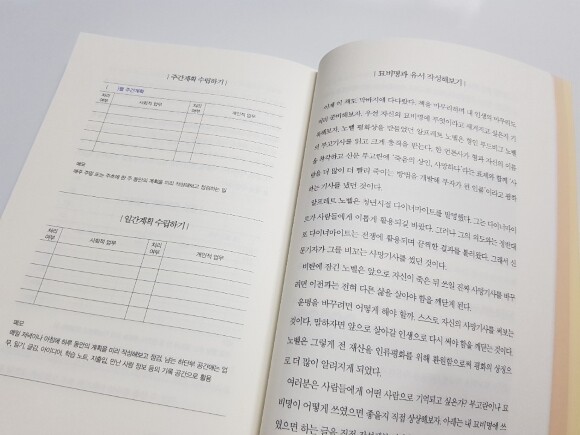 [ 주간계획 수립하기 ]
[ ]월 주간계획
처리
여부
사회적 업무
처리
여부
개인적 업무
메모
매주 주말 또는 주초에 한 주 동안의 계획을 미리 작성해보고 점검하는 일
[ 일간계획 수립하기 ]
처리
여부
사회적 업무
처리
여부
개인적 업무
메모
매일 저녁이나 아침에 하루 동안의 계획을 미리 작성해보고 점검, 남는 하단부 공간에는 업
무, 일기, 글감, 아이디어, 학습 노트, 지출입, 만난 사람 정보 등의 기록 공간으로 활용
[ 묘비명과 유서 작성해보기 ]
이제 이 책도 막바지에 다다랐다. 책을 마무리하며 내 인생의 마무리도
미리 준비해보자. 우선 자신의 묘비명에 무엇이라고 새겨지고 싶은지 기
록해보자. 노벨 평화상을 만들었던 알프레트 노벨은 형인 루드비그 노벨
의 부고기사를 읽고 크게 충격을 받는다. 한 신문사가 형과 자신의 이름
을 착각하고 신문 부고란에 '죽음의 상인, 사망하다'라는 표제와 함께 '사
람을 더 많이 더 빨리 죽이는 방법을 개발해 부자가 된 인물'이라고 평하
는 기사를 냈던 것이다.
알프레트 노벨은 청년시절 다이너마이트를 발명했다. 그는 다이너마이
트가 사람들에게 이롭게 활용되길 바랐다. 그러나 그의 의도와는 정반대
로 다이너마이트는 전쟁에 활용되며 끔찍한 결과를 불러왔다. 그래서 신
문기자가 그를 비꼬는 사망기사를 썼던 것이다.
비탄에 잠긴 노벨은 앞으로 자신이 죽은 뒤 쓰일 진짜 사망기사를 바꾸
려면 이전과는 전혀 다른 삶을 살아야 함을 깨닫게 된다.
운명을 바꾸려면 어떻게 해야 할까. 스스로 자신의 사망기사를 써보는
것이다. 말하자면 앞으로 살아갈 인생으로 다시 써야 함을 깨닫는 것이다.
노벨은 그렇게 전 재산을 인류평화를 위해 환원함으로써 평화의 상징으
로 더 많이 알려지게 되었다.
여러분은 사람들에게 어떤 사람으로 기억되고 싶은가? 부고란이나 묘
비명이 어떻게 쓰였으면 좋을지 직접 상상해보자. 아래는 내 묘비명에 쓰
있으면 하는 글을 직접